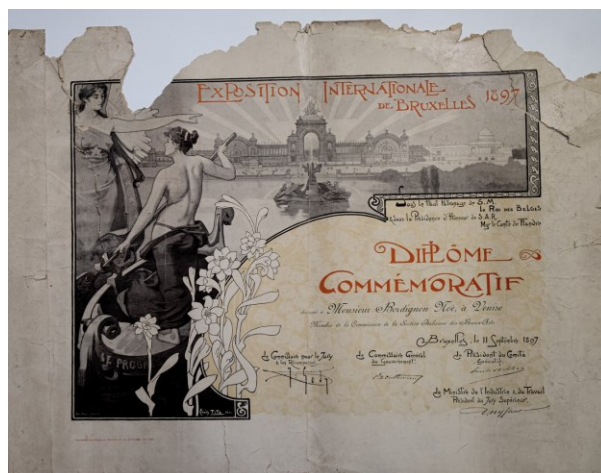 EXPOSITION INTERNATIONALE
DE BRUXELLES 1897
Sous le Haut Patronage de S.M.
Le Roi des Belges
& sous la Présidence d'Honneur de S.A.R.
Mgr le Comte de Flandre
DIPLÔME
COMMÉMORATIF
décerné à Monsieur Bordignon Noè, à Venise
Membre de la Commission de la Section Italienne des Beaux-Arts
Bruxelles, le 11 Septembre 1897
Le Commissaire pour le Jury
& les Récompenses
Le Commissaire Général
du Gouvernement
Le Président du Comité
Exécutif
LE PROG
Le Ministre de l'Industrie & du Travail
Président du Jury Supérieur